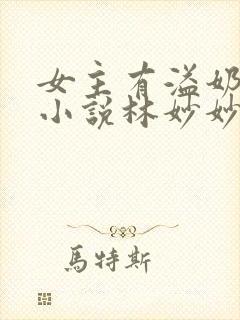 女主有溢奶
小說林妙妙
馬特斯